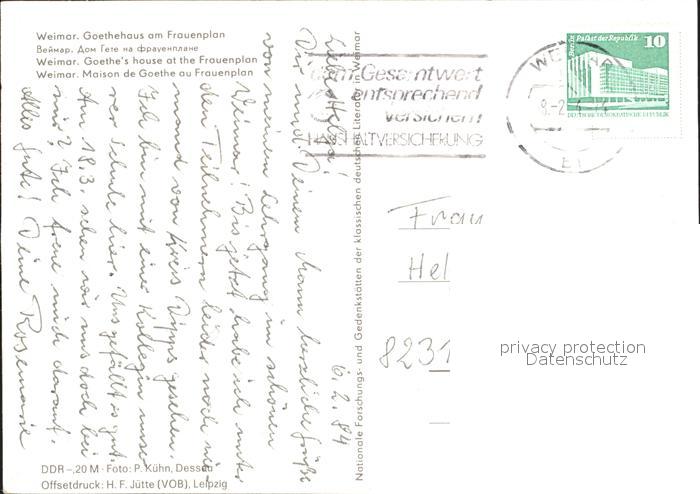 Weimar. Goethehaus am Frauenplan
Веймар. Дом Гете на фрауенплане
Weimar. Goethe's house at the Frauenplan
Weimar. Maison de Goethe au Frauenplan
6.2.84
Liebe Helga!
Dir und Deinem Mann herzliche Grüße
von meinem Lehrgang im schönen
Weimar! Bis jetzt habe ich unter
den Teilnehmern leider noch nie-
mand vom Kreis gesehen.
Ich bin mit einer Kollegin unse-
rer Schule hier. Uns gefällt es gut.
Am 18.3. sehen wir uns doch bei
mir? Ich freue mich darauf.
Alles Gute! Deine Rosemarie
DDR –,20 M · Foto: P. Kühn, Dessau
Offsetdruck: H. F. Jütte (VOB), Leipzig
Nationale Forschungs- und Gedenkstätten der klassischen deutschen Literatur in Weimar
dem Gesamtwert
entsprechend
versichern!
HAUSHALTVERSICHERUNG
WEIMAR
Berlin Palast der Republik
10
DEUTSCHE DEMOKRATISCHE REPUBLIK
Frau
Hel
8231
privacy protection
Datenschutz